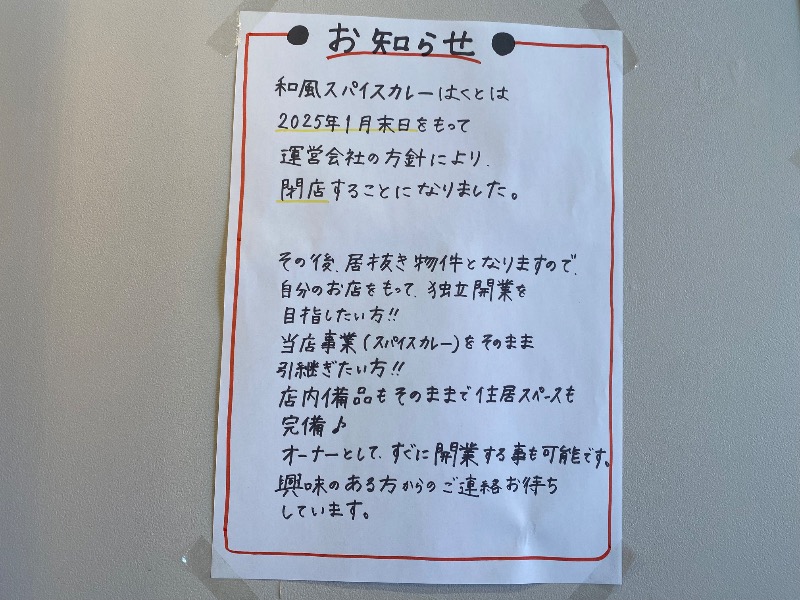 お知らせ
和風スパイスカレーはくとは
2025年1月末日をもって
運営会社の方針により、
閉店することになりました。
その後、居抜き物件となりますので、
自分のお店をもって、独立開業を
目指したい方!!
当店事業(スパイスカレー)をそのまま
引継ぎたい方!!
店内備品もそのままで住居スペースも
完備♪
オーナーとして、すぐに開業する事も可能です。
興味のある方からのご連絡お待ち
しています。